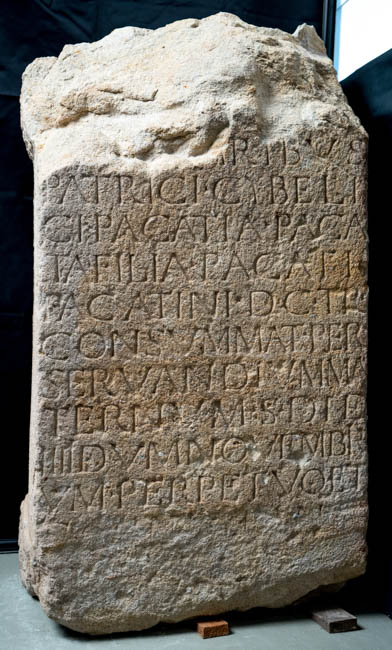 PATRICI·CYBELI
CI·PACATIA·PACA
TA FILIA PACATI
PACATINI·D·C·TE
CONSVMMAT·PER
SERVANDIVMNA
TERINVM·S·D·I·D
IIII DVM NOVEMBR
VM·PERPETVO ET